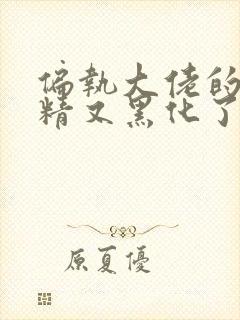 偏執大佬的
精又黑化了
原夏優